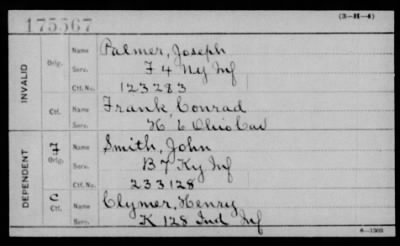 175567
(3—H—4)
INVALID
Orig.
Name Palmer, Joseph
Serv. F 4 Ny Inf
Ctf. No. 123283
Ctf.
Name Frank, Conrad
Serv. H 6 Ohio Cav
DEPENDENT
F Orig.
Name Smith, John
Serv. B 7 Ky Inf
Ctf. No. 233128
C Ctf.
Name Clymer, Henry
Serv. K 128 Ind Inf